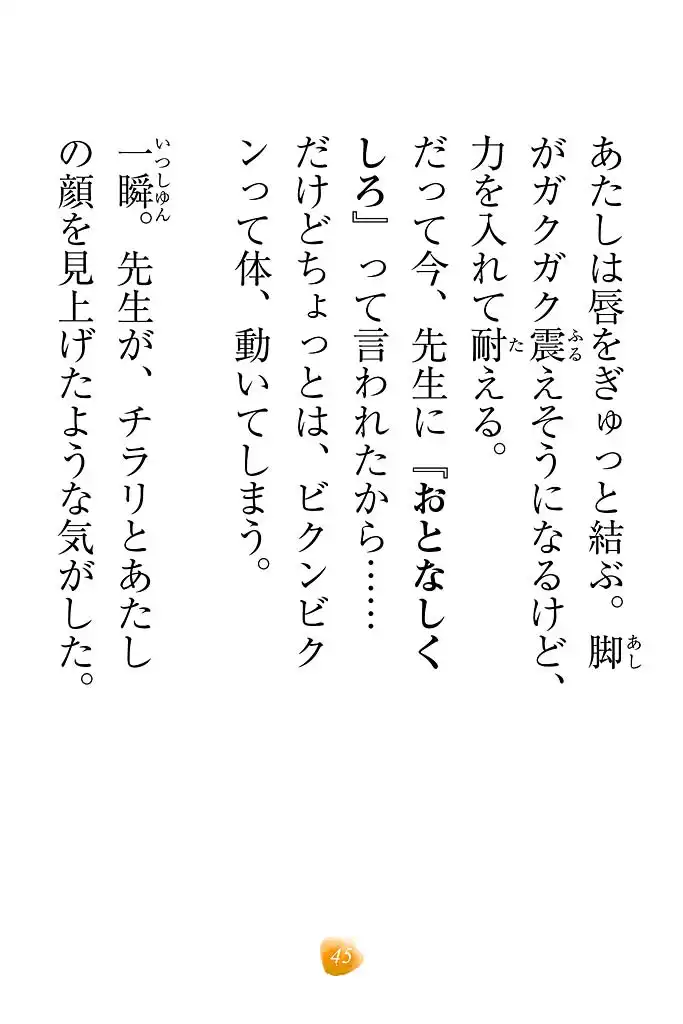 あたしは唇をぎゅっと結ぶ。脚
あし
がガクガク震えそうになるけど、
ふる
力を入れて耐える。
た
だって今、先生に『おとなしく
しろ』って言われたから……
だけどちょっとは、ビクンビク
ンって体、動いてしまう。
一瞬。先生が、チラリとあたし
いっしゅん
の顔を見上げたような気がした。
45